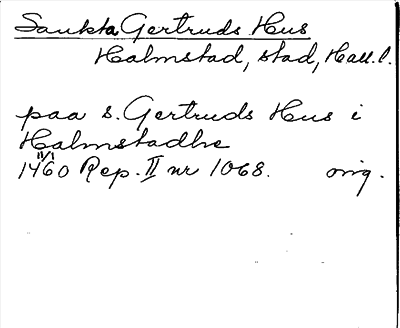 Sankta Gertruds Hus
Halmstad, stad, Hall.l.
paa s. Gertruds Hus i
Halmstadhe
11/1
1460 Rep. II nr 1068. orig.